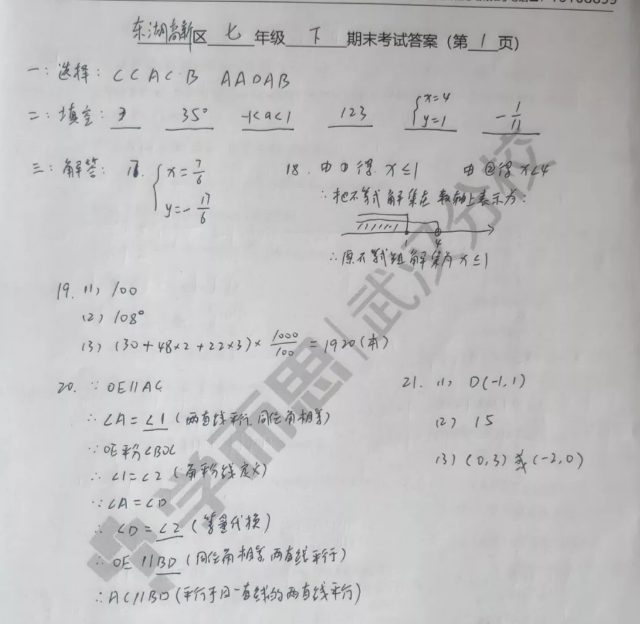 东湖高新区 七 年级 下 期末考试答案（第 1 页）
一：选择：C C A C B A A D A B
二：填空：3 35° -1<a<1 123 {x=4 y=1 -1/11
三：解答：17. {x=7/6 y=-17/6
18. 由①得 x≤1 由②得 x<4
∴把不等式解集在数轴上表示为：
1 4
∴原不等式组解集为 x≤1
19. (1) 100
(2) 108°
(3) (30+48×2+22×3)×1000/100=1920(本)
20. ∵OE∥AC
∴∠A=∠1（两直线平行，同位角相等）
∵OE平分∠BOC
∴∠1=∠2（角平分线定义）
∵∠A=∠D
∴∠D=∠2（等量代换）
∴OE∥BD（同位角相等，两直线平行）
∴AC∥BD（平行于同一直线的两直线平行）
21. (1) D(-1,1)
(2) 15
(3) (0,3)或(-2,0)
学而思|武汉分校